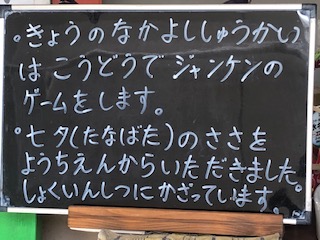 。きょうのなかよししゅうかい
はこうどうでジャンケンの
ゲームをします。
。七夕(たなばた)のささを
ようちえんからいただきました。
しょくいんしつにかざっています。